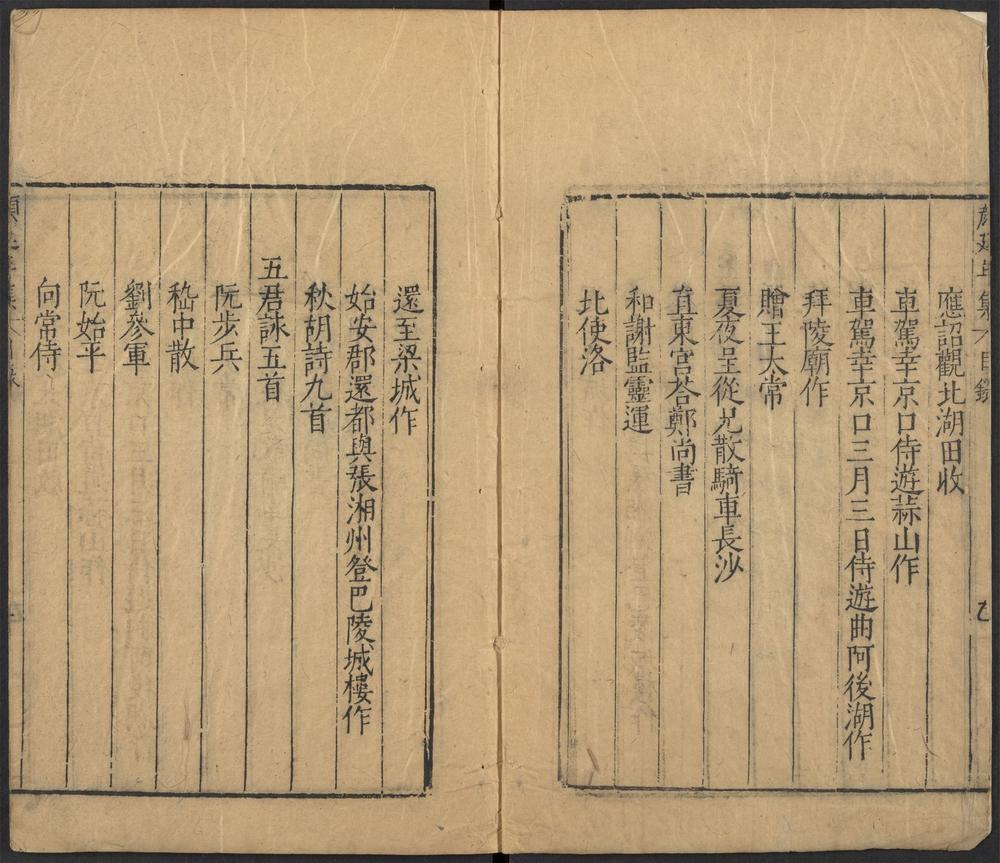 應詔觀北湖田收
車駕幸京口侍遊蒜山作
車駕幸京口三月三日侍遊曲阿後湖作
拜陵廟作
贈王太常
夏夜呈從兄散騎車長沙
直東宮荅鄭尚書
和謝監靈運
北使洛
還至梁城作
始安郡還都與張湘州登巴陵城樓作
秋胡詩九首
五君詠五首
阮步兵
嵇中散
劉參軍
阮始平
向常侍